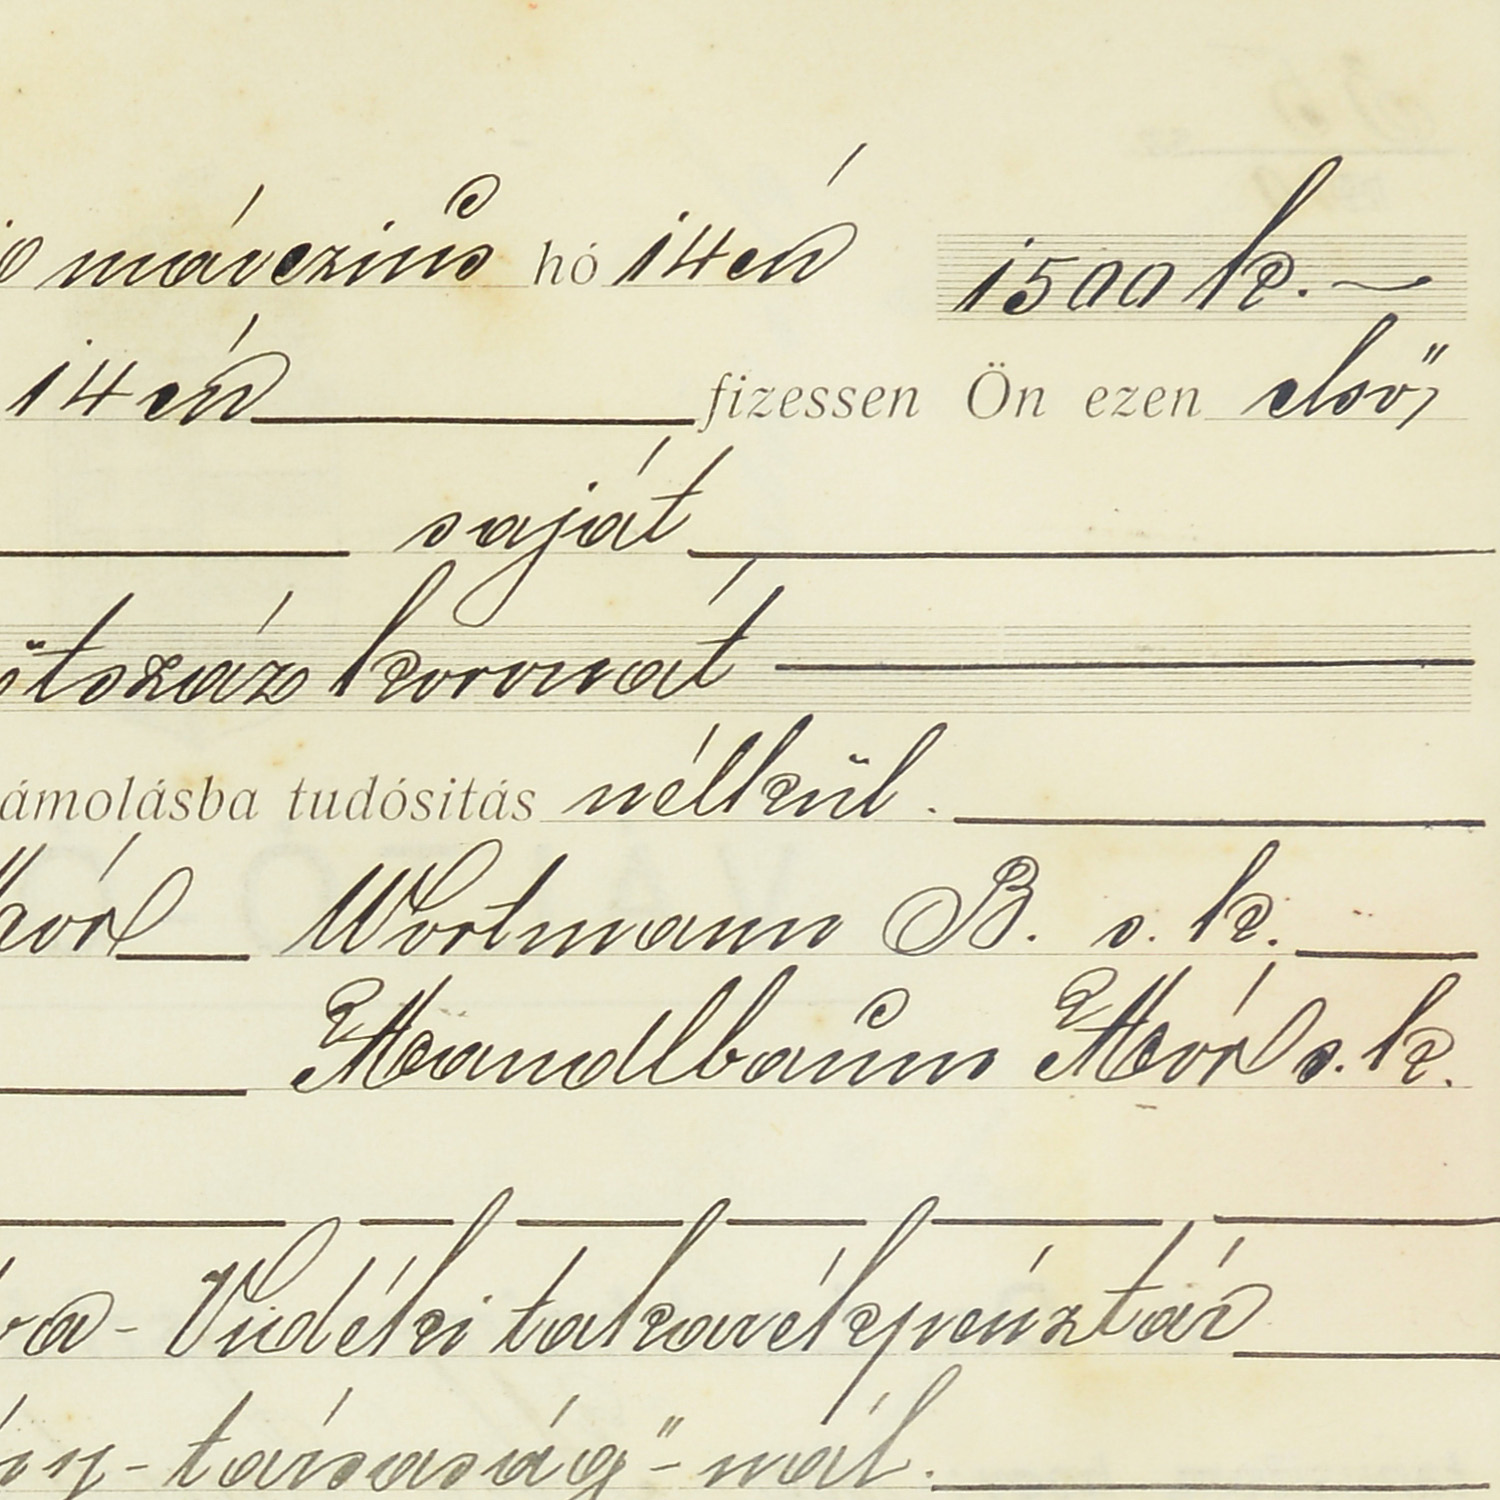 március hó 14én 1500 k.
14én fizessen Ön ezen első,
saját
ötszáz koronát
ámolásba tudósitás nélkül.
Mór Wortmann B. s. k.
Mandlbaum Mór s. k.
va - Vidéki takarékpénztár
ny - társaság" - nál.